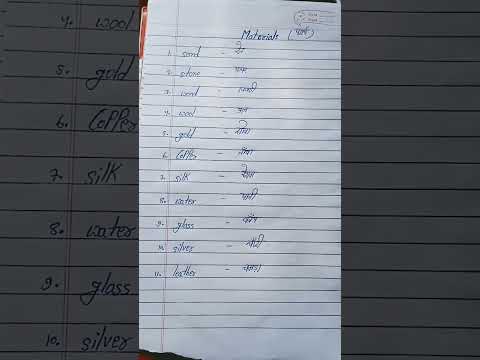 Materials
1. sand - रेत
2. stone - पत्थर
3. wood - लकड़ी
4. wool - ऊन
5. gold - सोना
6. Copper - तांबा
7. silk - रेशम
8. water - पानी
9. glass - काँच
10. silver - चाँदी
11. leather - चमड़ा
4. wool
5. gold
6. Copper
7. silk
8. water
9. glass
10. silver